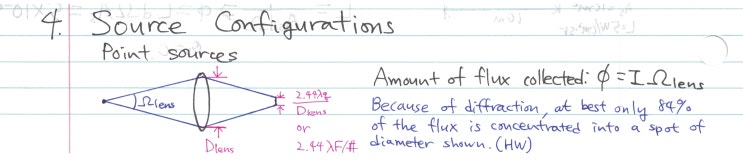 4. Source Configurations
Point sources
Ωlens
Dlens
2.44λq
Dlens
or
2.44λF/#
Amount of flux collected: ϕ = I Ωlens
Because of diffraction, at best only 84%
of the flux is concentrated into a spot of
diameter shown. (HW)